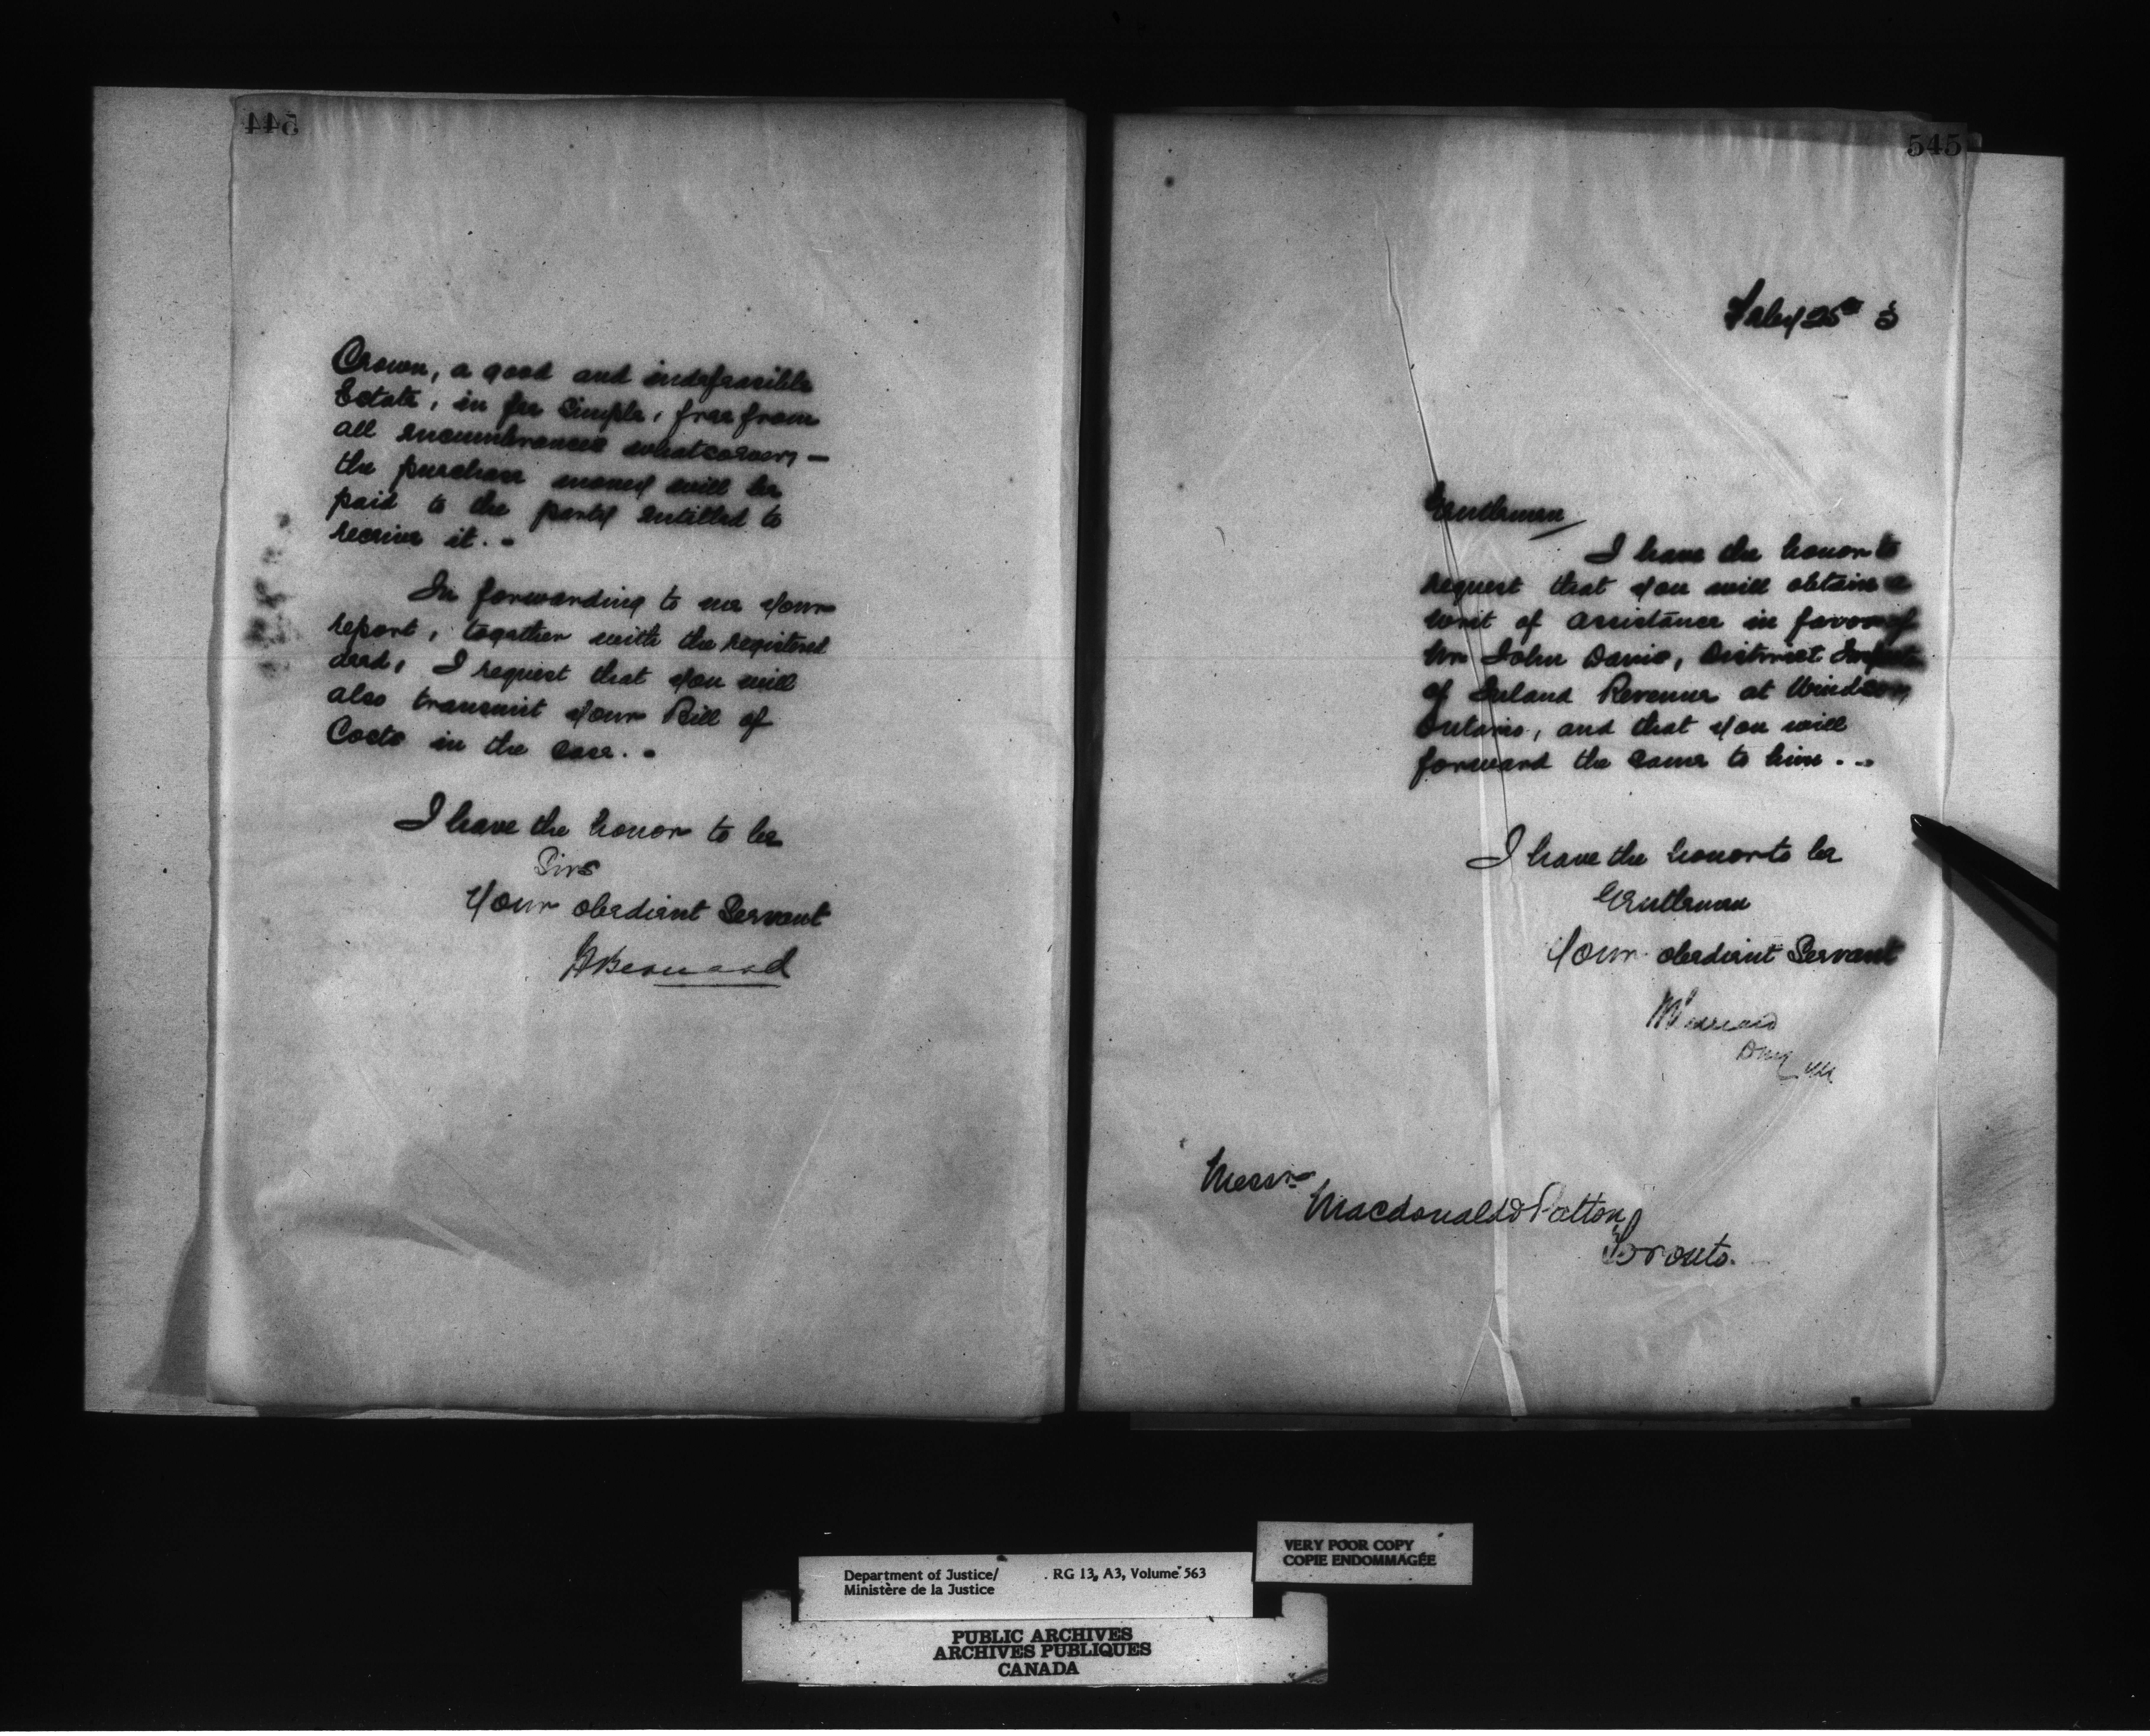 544
Crown, a good and indefeasible
Estate, in fee simple, free from
all encumbrances whatsoever, —
the purchase money will be
paid to the party entitled to
receive it. -
In forwarding to me your
report, together with the registered
deed, I request that you will
also transmit your Bill of
Costs in the case. -
I have the honor to be
Sirs
Your obedient Servant
HBernard
545
Feby 25th 3
Gentlemen
I have the honor to
request that you will obtain a
writ of assistance in favor of
Mr John Davis, District Inspector
of Inland Revenue at Windsor,
Ontario, and that you will
forward the same to him. - -
I have the honor to be
Gentlemen
Your obedient Servant
Messrs
Macdonald & Patton
Toronto.
VERY POOR COPY
COPIE ENDOMMAGÉE
Department of Justice/ RG 13, A3, Volume 563
Ministère de la Justice
PUBLIC ARCHIVES
ARCHIVES PUBLIQUES
CANADA